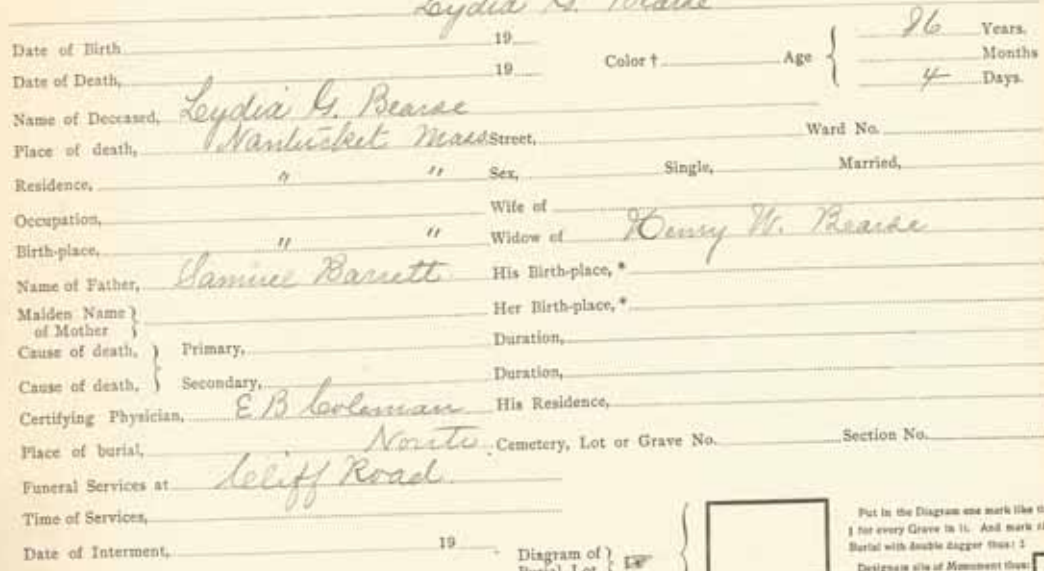 Lydia G. Bearse
Date of Birth 19 Color † Age 86 Years.
Months
Date of Death, 19 4 Days.
Name of Deceased, Lydia G. Bearse
Place of death, Nantucket Mass Street, Ward No.
Residence, " " Sex, Single, Married,
Occupation, Wife of
Birth-place, " " Widow of Henry W. Bearse
Name of Father, Samuel Barrett His Birth-place, *
Maiden Name of Mother } Her Birth-place, *
Cause of death, } Primary, Duration,
Cause of death, } Secondary, Duration,
Certifying Physician, E B Coleman His Residence,
Place of burial, North Cemetery, Lot or Grave No. Section No.
Funeral Services at Cliff Road.
Time of Services,
Date of Interment, 19 .
Diagram of } ☞
Burial Lot
Put in the Diagram one mark like
for every Grave in it. And mark
Burial with double dagger thus: ‡
Designate site of Monument thus: